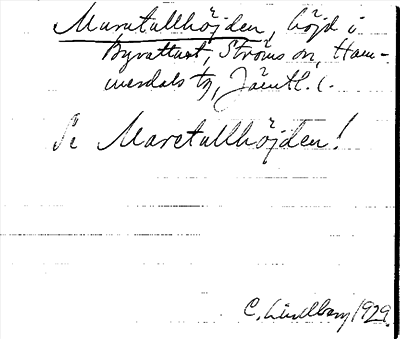 Maratallhöjden, höjd i
Byrattart, Ströms sn, Ham-
merdals tg, Jämtl. l.
Se Maretallhöjden!
C. Lindberg 1929.